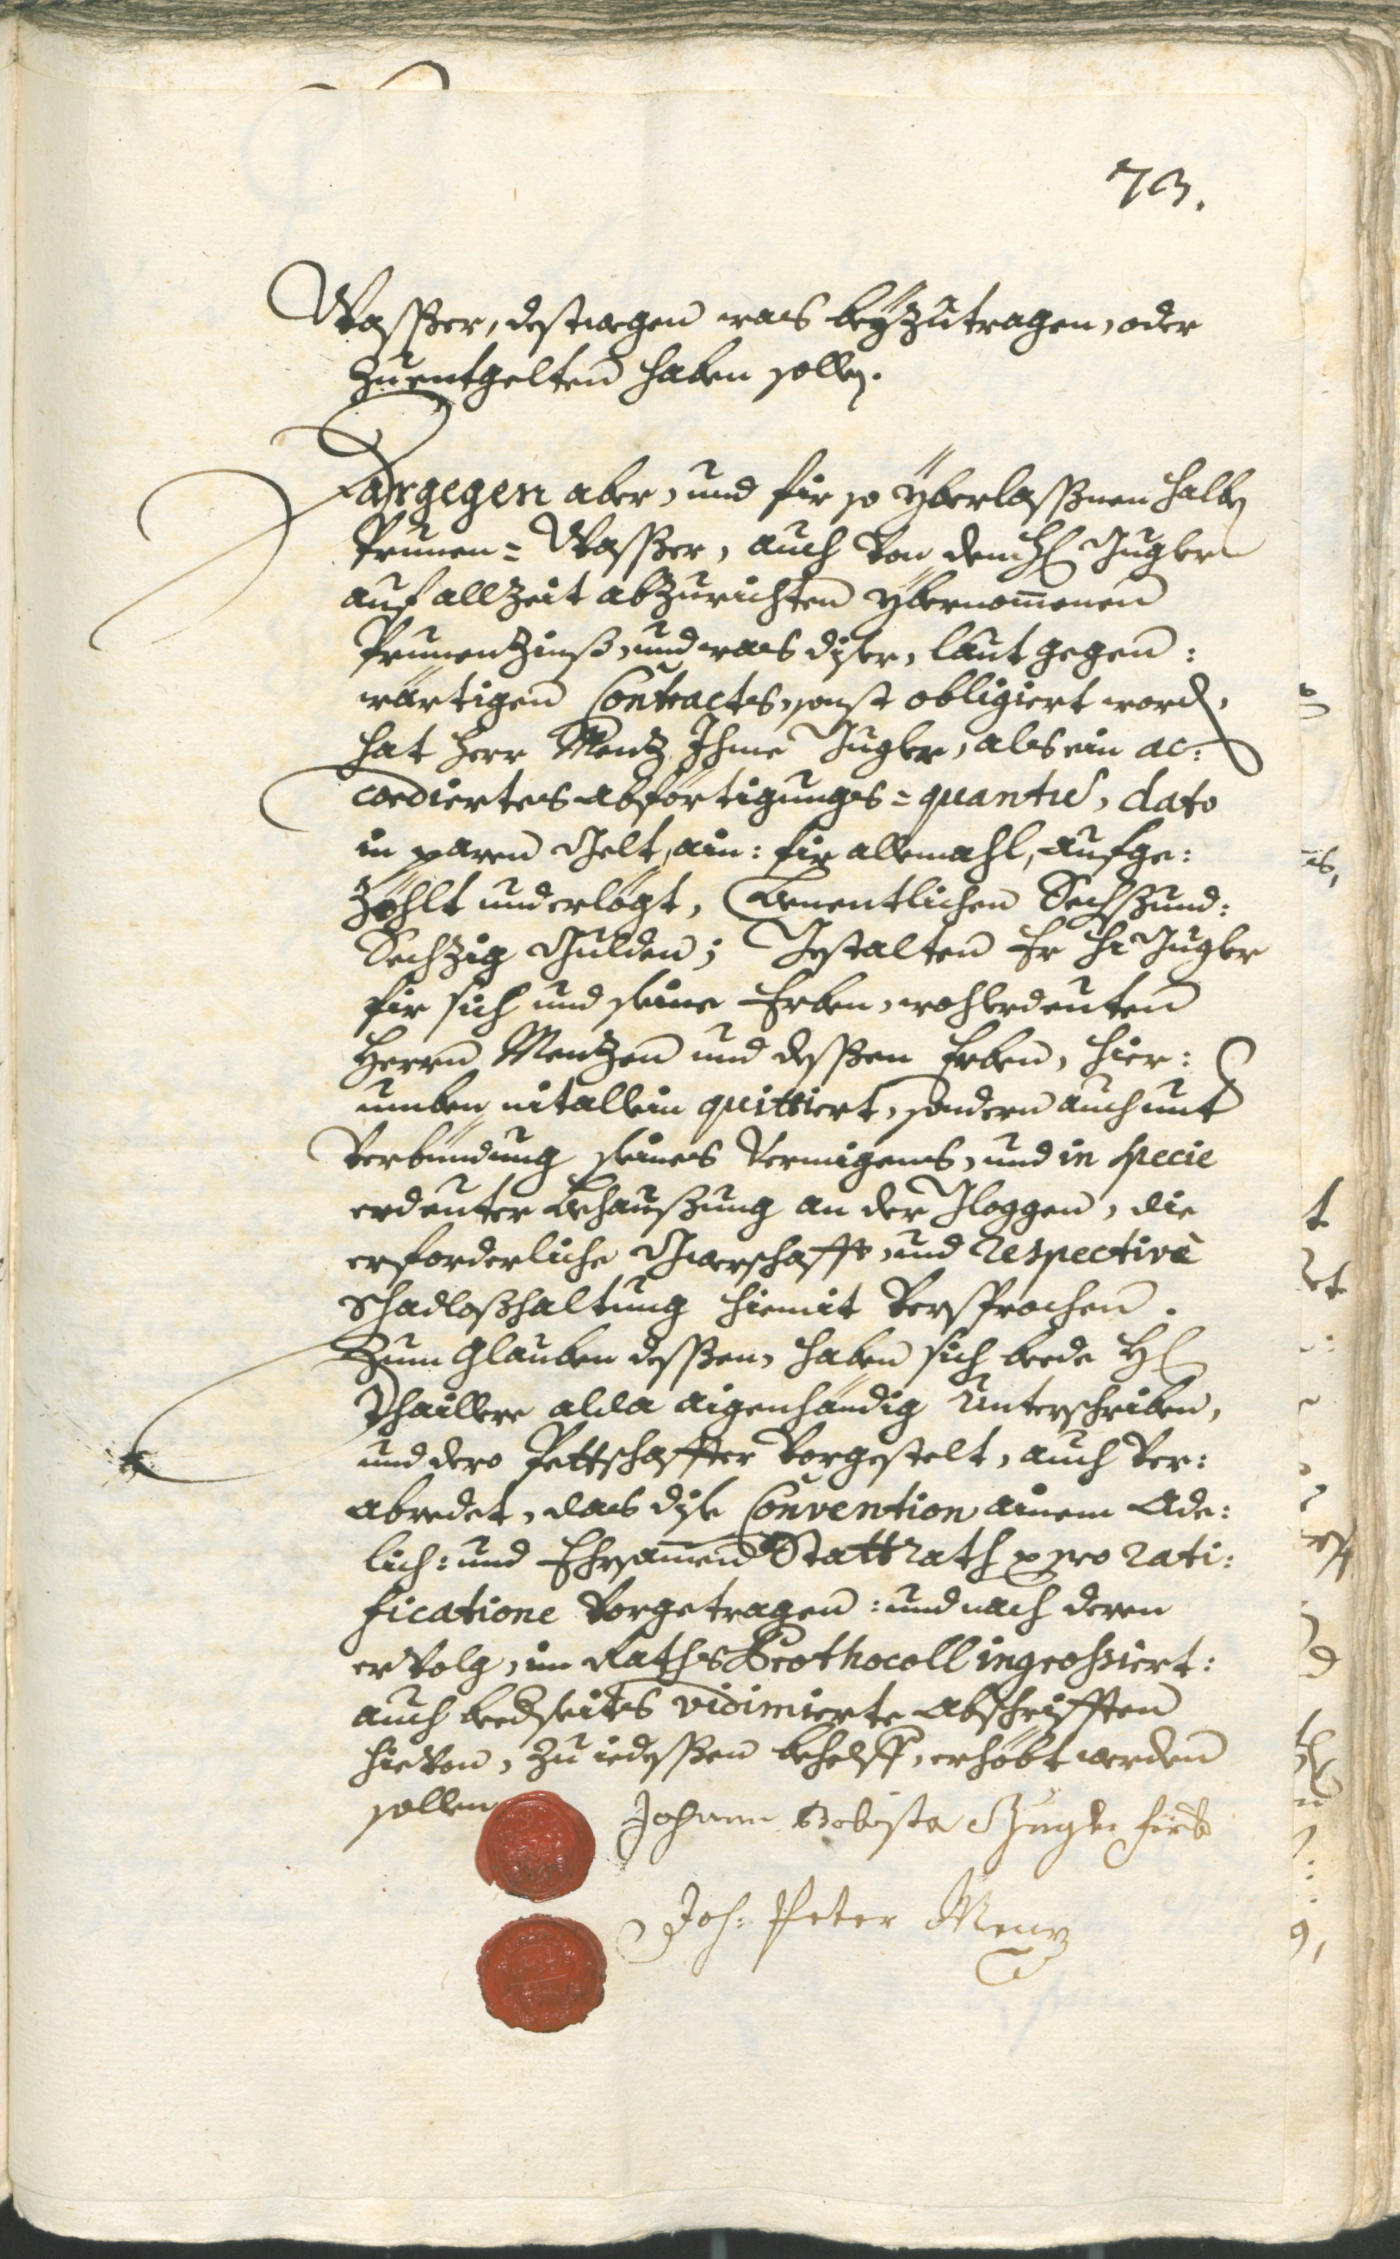 73.
Wasßer, destwegen was beÿzutragen, oder
zuentgelten haben solle.
Dargegen aber, und fir so ÿberlaßnen halben
Prunen= Wasßer, auch von dem H: Jugler
auf allzeit abzurichten ÿbernom̄enen
Prunentzinß, und was diser, laut gegen:
wärtigen Contracts, sonst obligiert word,
hat Herr Mentz Ihme Jugler, als ein ac:
cordiertes abförtigungs= quantu͂, dato
in paren Gelt, ain: fir allemahl, aufge:
zöhlt und erlögt, Benentlichen Sechßund:
Sechzig Gulden; Gestalten Er Hr Jugler
fir sich und seine Erben, wolerdeuten
Herrn Mentzen und desßen Erben, hier:
umben nit allein quittiert, sondern auch mit
Verbündung seines Vermigens, und in specie
erdeuter Behaußung an der Floggen, die
erforderliche Gwerschafft, und respectivè
Schadloßhaltung hiemit Versprochen.
Zum Glauben desßen, haben sich beede H:
Thaillere alda aigenhändig Unterschriben,
und dero Pettschaffter Vorgestelt, auch Ver:
abredet, das dise Convention ainem Ade:
lich: und Ehrsamen Stattrath pro rati:
ficatione Vorgetragen: und nach deren
ervolg, im Raths Prothocoll ingrossiert:
auch beedseits vidimierte Abschrifften
hievon, zu iedesßen behelff, erhöbt werden
sollen
Johann Babista Jugler
Joh: Peter Menz